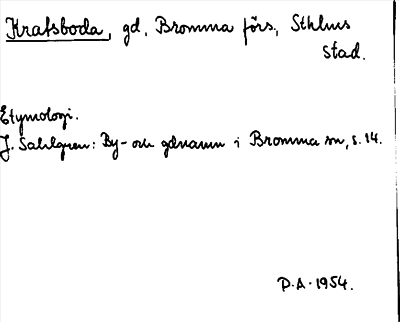 Krafsboda, gd, Bromma förs., Sthlms
stad.
Etymologi.
J. Sahlgren: By- och gdnamn i Bromma sn, s. 14.
P.A. 1954.